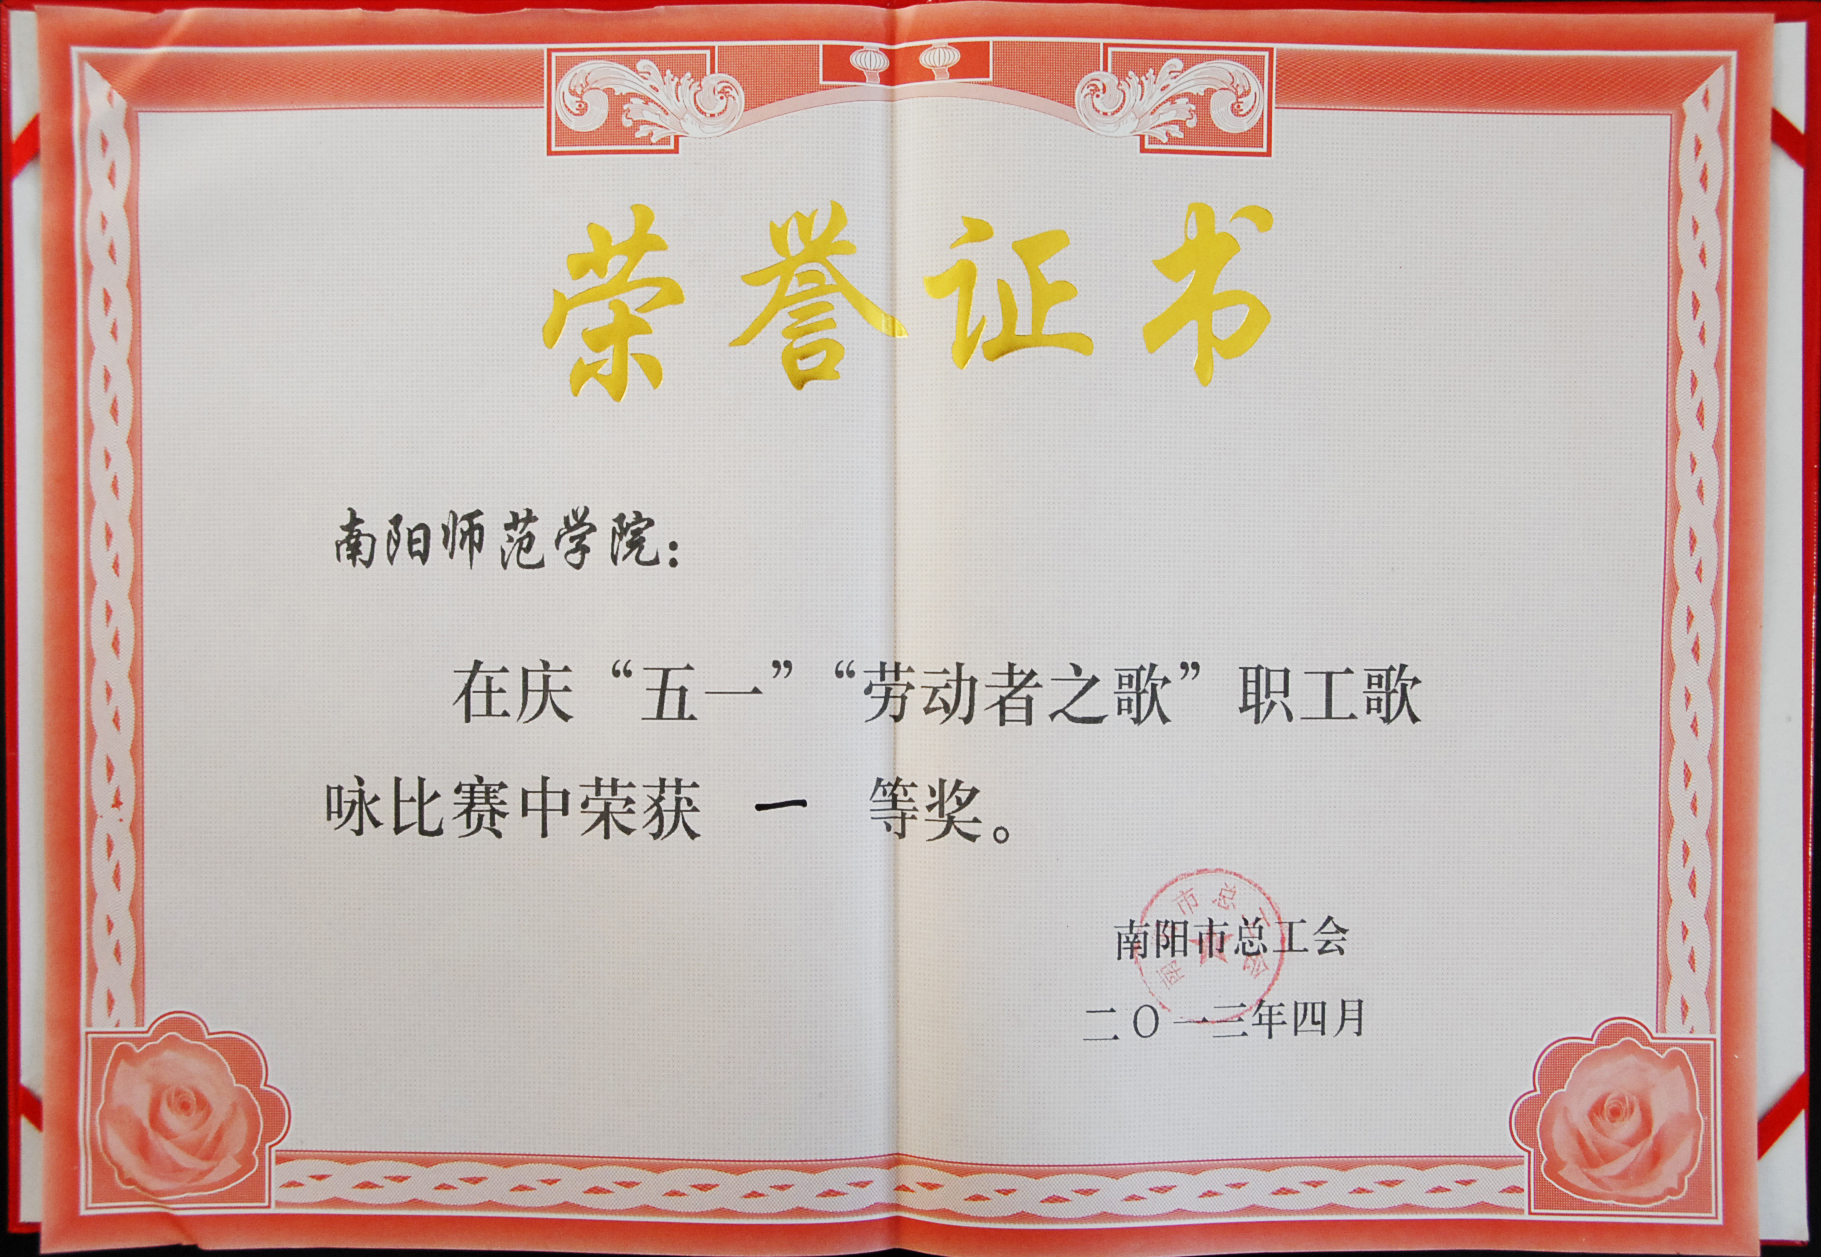 荣誉证书
南阳师范学院：
在庆“五一”“劳动者之歌”职工歌
咏比赛中荣获 一 等奖。
南阳市总工会
二〇一三年四月
南阳市总工会